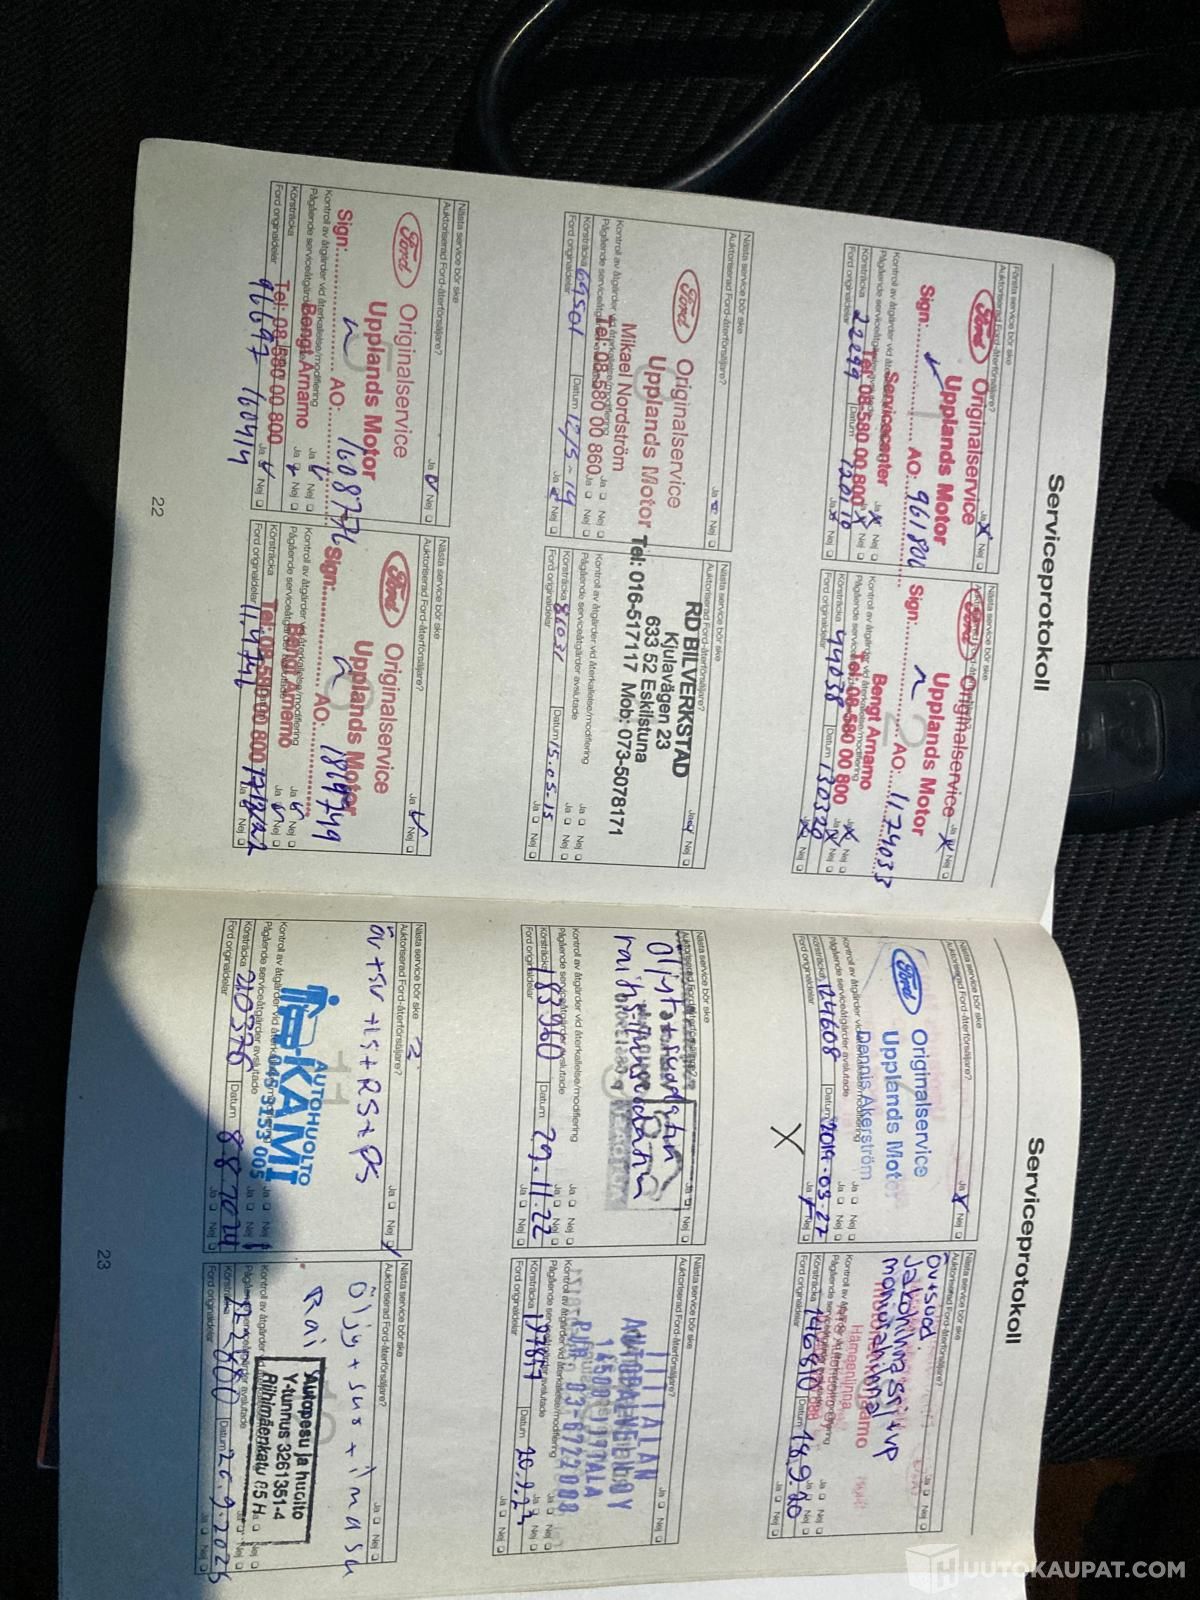 Serviceprotokoll
Första service bör ske
Auktoriserad Ford-återförsäljare? Ja Nej
Ford Originalservice
Upplands Motor
Sign: AO: 961804
Servicecenter
Tel 08-580 00 800
Kontroll av åtgärder vid återkallelse/modifiering Ja Nej
Pågående serviceåtgärder avslutade Ja Nej
Körsträcka 22299 Datum 120110
Ford originaldelar Ja Nej
Nästa service bör ske
Auktoriserad Ford-återförsäljare? Ja Nej
2
Ford Originalservice
Upplands Motor
Sign: AO: 1124033
Bengt Arnamo
Tel: 08-580 00 800
Kontroll av åtgärder vid återkallelse/modifiering Ja Nej
Pågående serviceåtgärder avslutade Ja Nej
Körsträcka 44038 Datum 130320
Ford originaldelar Ja Nej
Nästa service bör ske
Auktoriserad Ford-återförsäljare? Ja Nej
Ford Originalservice
Upplands Motor
Mikael Nordström
Tel: 08-580 00 860
Kontroll av åtgärder vid återkallelse/modifiering Ja Nej
Pågående serviceåtgärder avslutade Ja Nej
Körsträcka 69501 Datum 12/5-14
Ford originaldelar Ja Nej
Nästa service bör ske
Auktoriserad Ford-återförsäljare? Ja Nej
RD BILVERKSTAD
Kjulavägen 23
633 52 Eskilstuna
Tel: 016-517117 Mob: 073-5078171
Kontroll av åtgärder vid återkallelse/modifiering Ja Nej
Pågående serviceåtgärder avslutade Ja Nej
Körsträcka 86031 Datum 15.05.15
Ford originaldelar Ja Nej
Nästa service bör ske
Auktoriserad Ford-återförsäljare? Ja Nej
Ford Originalservice
Upplands Motor
Sign: AO: 1608776
Bengt Arnamo
Tel: 08-580 00 800
Kontroll av åtgärder vid återkallelse/modifiering Ja Nej
Pågående serviceåtgärder avslutade Ja Nej
Körsträcka 96697 160414
Ford originaldelar Ja Nej
Nästa service bör ske
Auktoriserad Ford-återförsäljare? Ja Nej
Ford Originalservice
Upplands Motor
Sign: AO: 1869749
Bengt Arnemo
Tel: 08-580 00 800
Kontroll av åtgärder vid återkallelse/modifiering Ja Nej
Pågående serviceåtgärder avslutade Ja Nej
Körsträcka
Ford originaldelar Ja Nej
22
Serviceprotokoll
Nästa service bör ske
Auktoriserad Ford-återförsäljare? Ja Nej
Ford Originalservice
Upplands Motor
Dennis Åkerström
Kontroll av åtgärder vid återkallelse/modifiering Ja Nej
Pågående serviceåtgärder avslutade Ja Nej
Körsträcka 124608 Datum 2019-03-27
Ford originaldelar Ja Nej
X
Nästa service bör ske
Auktoriserad Ford-återförsäljare? Ja Nej
öv+suod.
Jakohihna srj+vp
moniurahihna
Hämeenlinna
Kontroll av åtgärder vid återkallelse/modifiering Ja Nej
Pågående serviceåtgärder avslutade Ja Nej
Körsträcka 146810 Datum 18.9.20
Ford originaldelar Ja Nej
Nästa service bör ske
Auktoriserad Ford-återförsäljare? Ja Nej
Öljyt + suodatin
raitisilmasuodatin
Kontroll av åtgärder vid återkallelse/modifiering Ja Nej
Pågående serviceåtgärder avslutade Ja Nej
Körsträcka 183960 Datum 29.11.22
Ford originaldelar Ja Nej
Nästa service bör ske
Auktoriserad Ford-återförsäljare? Ja Nej
IITTALAN
14500 IITTALA
PUH. 03-6722003
Kontroll av åtgärder vid återkallelse/modifiering Ja Nej
Pågående serviceåtgärder avslutade Ja Nej
Körsträcka Datum 20.9.23
Ford originaldelar Ja Nej
Nästa service bör ske
Auktoriserad Ford-återförsäljare? Ja Nej
öv+su+is+RS+PS
11
AUTOHUOLTO
KAMI
045 3153 005
Kontroll av åtgärder vid återkallelse/modifiering Ja Nej
Pågående serviceåtgärder avslutade Ja Nej
Körsträcka 210376 Datum 8.8.2024
Ford originaldelar Ja Nej
Nästa service bör ske
Auktoriserad Ford-återförsäljare? Ja Nej
Öljy + suo + ilmasu
Rai
Autopesu ja huolto
Y-tunnus 3261351-4
Riihimäenkatu 65 H
Kontroll av åtgärder vid återkallelse/modifiering Ja Nej
Pågående serviceåtgärder avslutade Ja Nej
Körsträcka Datum 26.9.2025
Ford originaldelar Ja Nej
23
HUUTOKAUPAT.COM